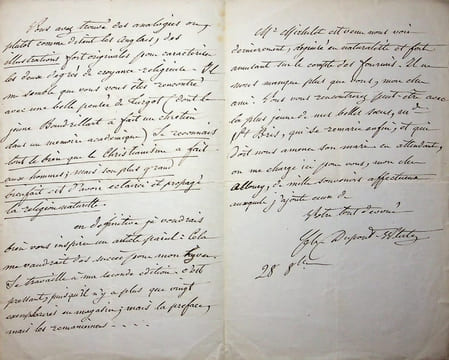 Vous avez trouvé des analogies ou
plutot comme disent les Anglais, des
illustrations fort originales pour caractériser
les deux degrés de croyance religieuse. Il
me semble que vous vous êtes rencontré
avec une belle pensée de Turgot (dont le
jeune Baudrillart a fait un chrétien
dans un mémoire académique) Je reconnais
tout le bien que le Christianisme a fait
aux hommes; mais son plus grand
bienfait est d'avoir éclairci et propagé
la religion naturelle.
en définitive je voudrais
bien vous inspirer un article pareil. Cela
me vaudrait des succès pour mon
Je travaille à ma seconde édition. c'est
pressant, puisqu'il n'y a plus que vingt
exemplaires en magasin; mais la préface,
mais les remaniemens ....
Mr Michelet est venu nous voir
dernièrement, déguisé en naturaliste et fort
amusant sur le compte des fourmis. Il ne
nous manque plus que vous, mon cher
ami. Vous vous rencontrerez peut-être avec
la plus jeune de mes belles sœurs,
qui se remarie enfin, et qui
doit nous amener son mari en attendant,
on me charge ici pour vous, mon cher
de mille souvenirs affectueux
auxquels j'ajoute ceux de
Votre tout dévoué
Dupont-White
28 8bre